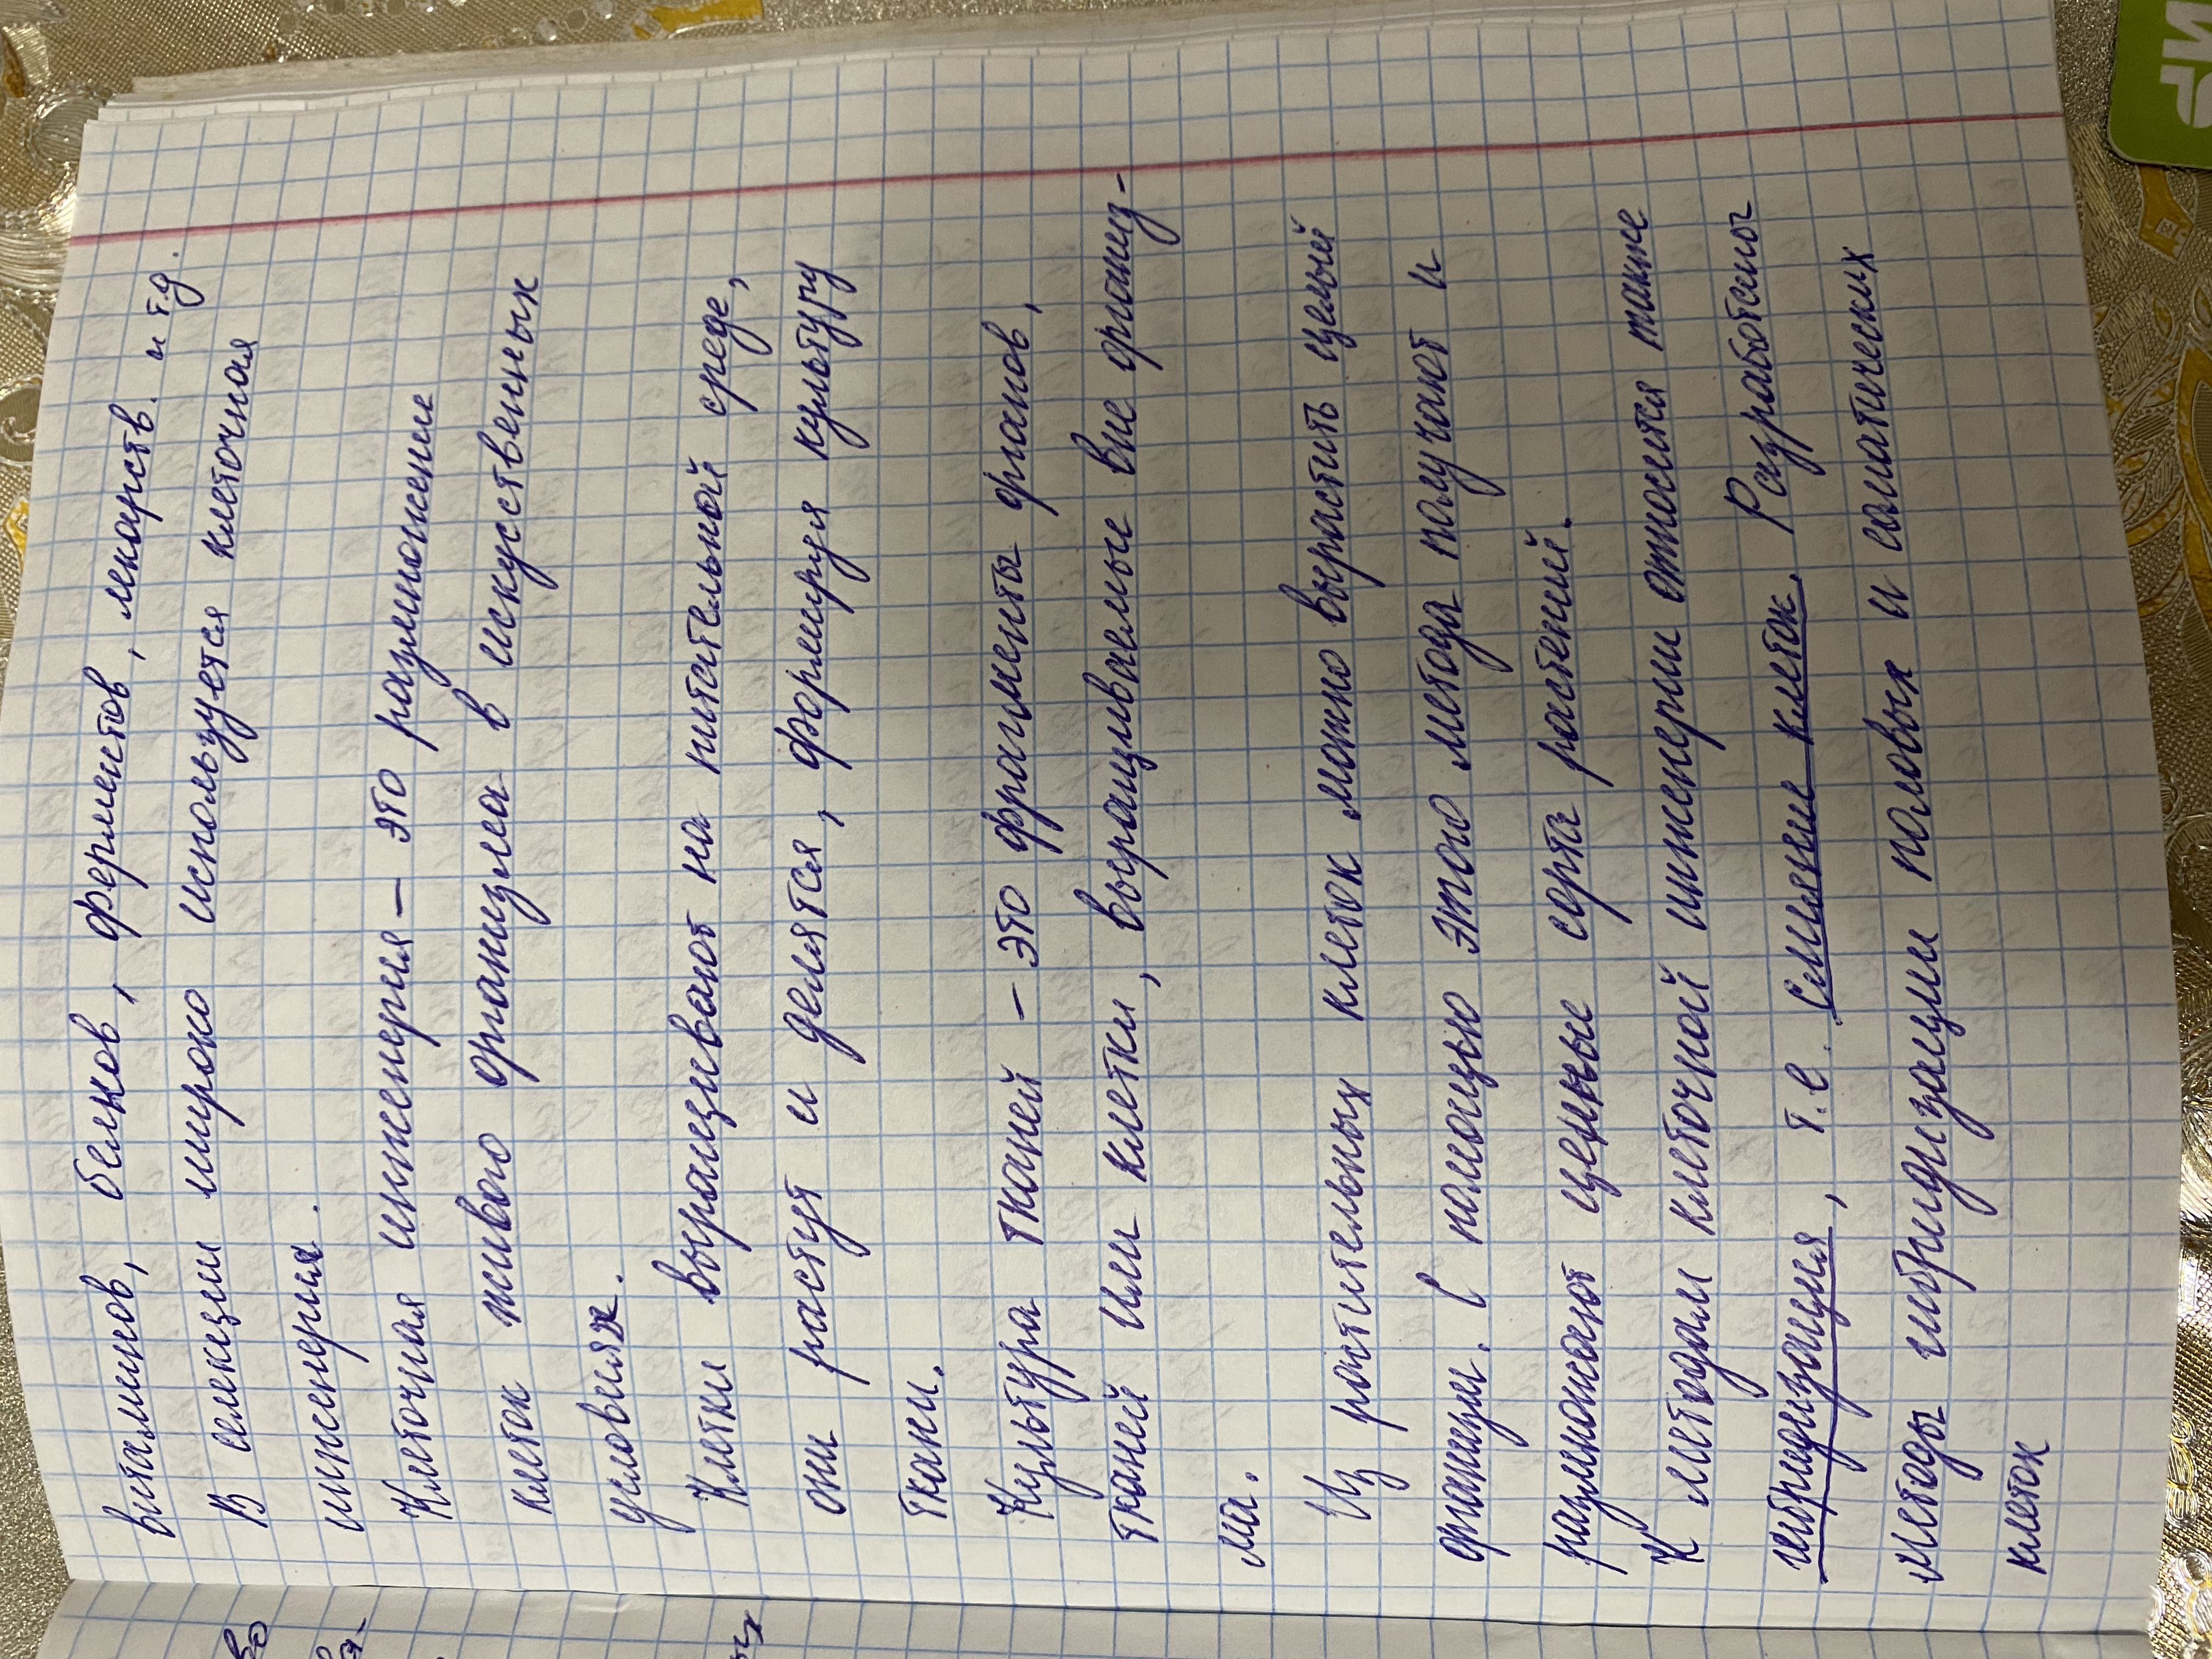 витаминов, белков, ферментов, лекарств. и тд.
В селекции широко используется клеточная
инженерия.
Клеточная инженерия – это размножение
клеток живого организма в искусственных
условиях.
Клетки выращивают на питательной среде,
они растут и делятся, формируя культуру
ткани.
Культура тканей – это фрагменты органов,
тканей или клетки, выращиваемые вне организ-
ма.
Из растительных клеток можно вырастить целый
организм. С помощью этого метода получают и
размножают ценные сорта растений.
К методам клеточной инженерии относится также
гибридизация, т.е. слияние клеток. Разработаны
методы гибридизации половых и соматических
клеток
МИР